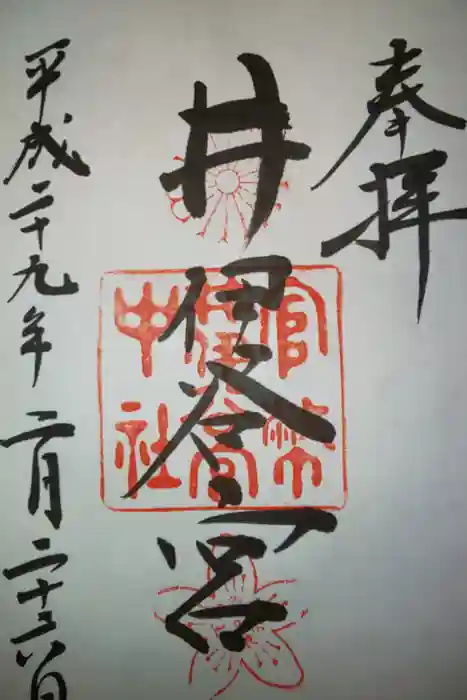 奉拝
井伊谷宮
官幣
中社
平成二十九年二月二十六日